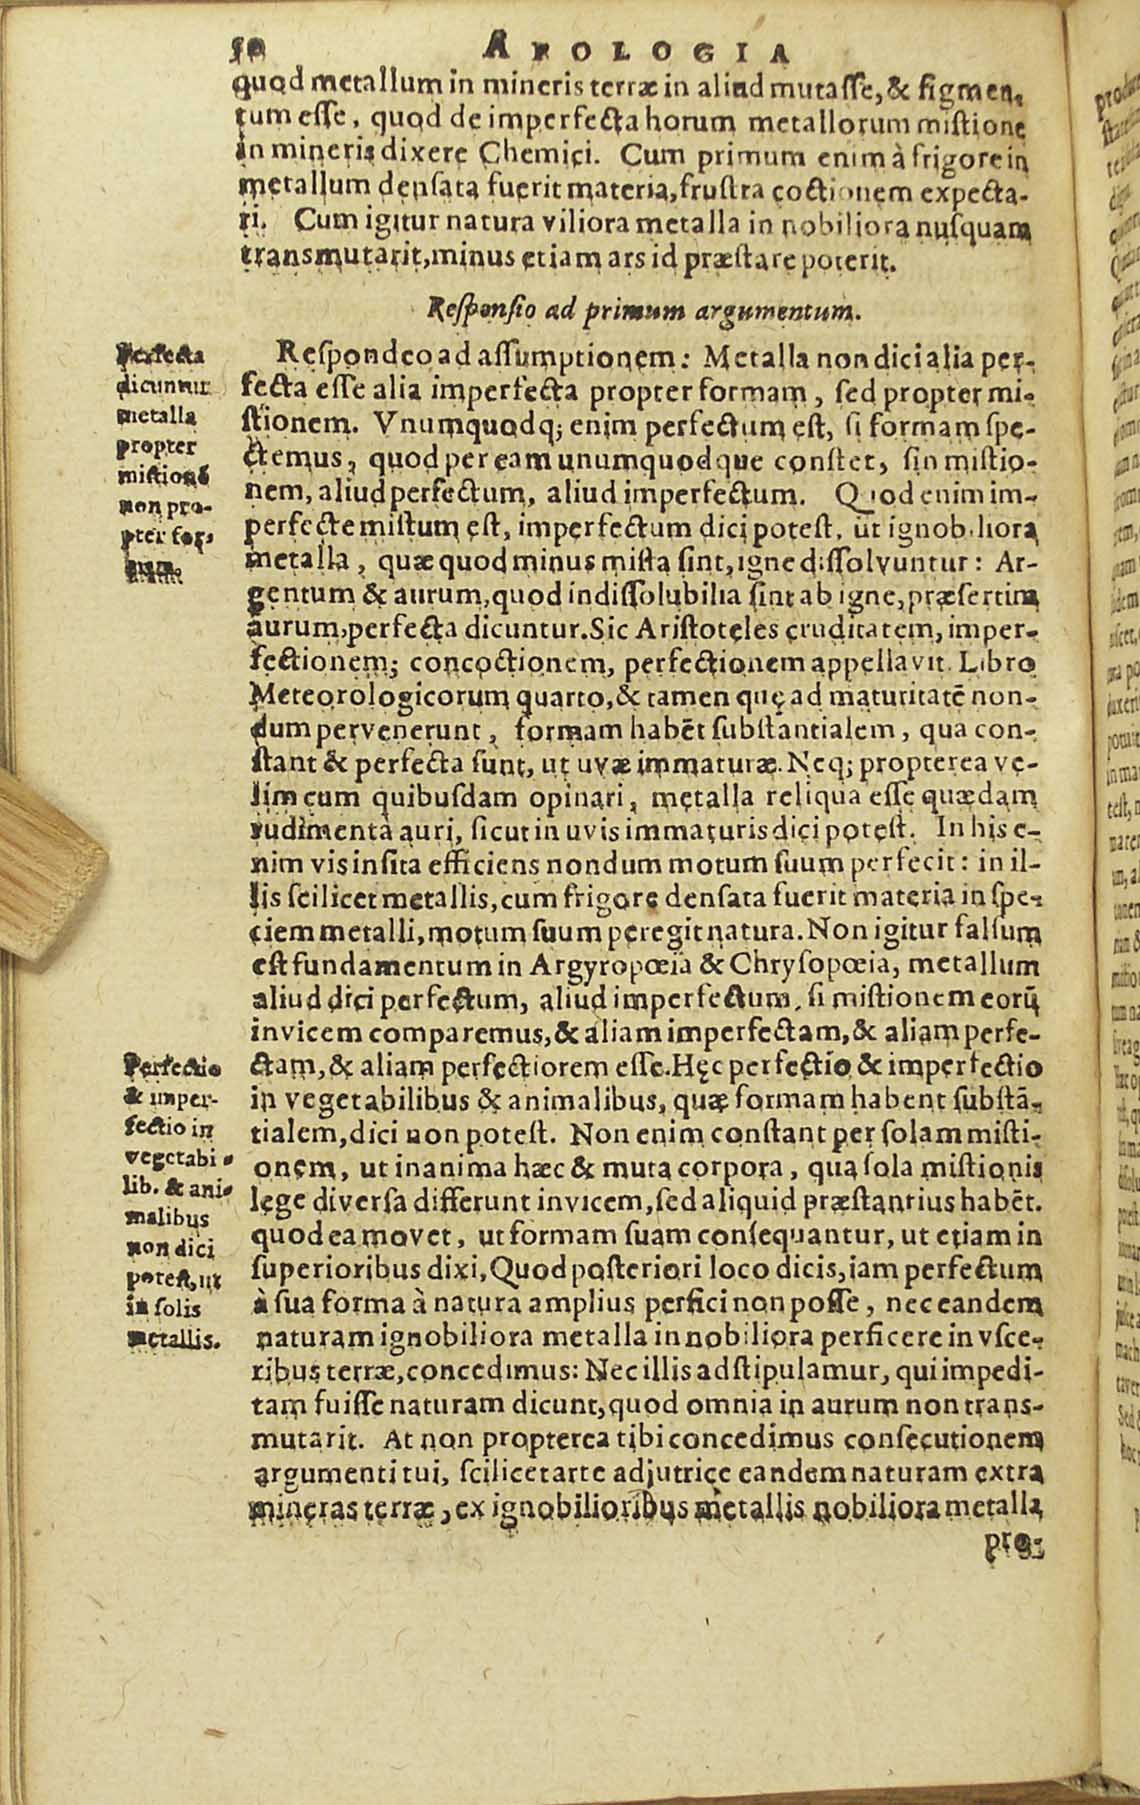 50 APOLOGIA
quod metallum in mineris terræ in aliud mutasse, & figmen-
tum esse, quod de imperfecta horum metallorum mistione
in mineris dixere Chemici. Cum primum enim à frigore in
metallum densata fuerit materia, frustra coctionem expecta-
ri. Cum igitur natura viliora metalla in nobiliora nusquam
transmutarit, minus etiam ars id præstare poterit.
Responsio ad primum argumentum.
Perfecta
dicuntur
metalla
propter
mictionē
non pro-
pter for-
mam.
Respondeo ad assumptionem: Metalla non dici alia per-
fecta esse alia imperfecta propter formam, sed propter mi-
stionem. Vnumquodq; enim perfectum est, si formam spe-
ctemus, quod per eam unumquodque constet, sin mistio-
nem, aliud perfectum, aliud imperfectum. Quod enim im-
perfecte mistum est, imperfectum dici potest, ut ignobiliora
metalla, quæ quod minus mista sint, igne dissolvuntur: Ar-
gentum & aurum, quod indissolubilia sint ab igne, præsertim
aurum, perfecta dicuntur. Sic Aristoteles cruditatem, imper-
fectionem; concoctionem, perfectionem appellavit Libro
Meteorologicorum quarto, & tamen quę ad maturitatē non-
dum pervenerunt, formam habēt substantialem, qua con-
stant & perfecta sunt, ut uvæ immaturæ. Neq; propterea ve-
lim cum quibusdam opinari, metalla reliqua esse quædam
rudimenta auri, sicut in uvis immaturis dici potest. In his e-
nim vis insita efficiens nondum motum suum perfecit: in il-
lis scilicet metallis, cum frigore densata fuerit materia in spe-
ciem metalli, motum suum peregit natura. Non igitur falsum
est fundamentum in Argyropœia & Chrysopœia, metallum
aliud dici perfectum, aliud imperfectum, si mistionem eorū
invicem comparemus, & aliam imperfectam, & aliam perfe-
Perfectio
& imper-
fectio in
vegetabi-
lib. & ani-
malibus
non dici
potest, ut
in solis
metallis.
ctam, & aliam perfectiorem esse. Hęc perfectio & imperfectio
in vegetabilibus & animalibus, quæ formam habent substā-
tialem, dici non potest. Non enim constant per solam misti-
onem, ut inanima hæc & muta corpora, qua sola mistionis
lege diversa differunt invicem, sed aliquid præstantius habēt.
quod ea movet, ut formam suam consequantur, ut etiam in
superioribus dixi, Quod posteriori loco dicis, iam perfectum
à sua forma à natura amplius perfici non posse, nec eandem
naturam ignobiliora metalla in nobiliora perficere in vsce-
ribus terræ, concedimus: Nec illis adstipulamur, qui impedi-
tam fuisse naturam dicunt, quod omnia in aurum non trans-
mutarit. At non propterea tibi concedimus consecutionem
argumenti tui, scilicet arte adjutrice eandem naturam extra
mineras terræ, ex ignobilioribus metallis nobiliora metalla
pro-